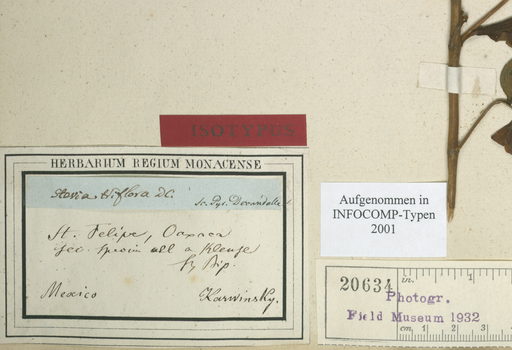 ISOTYPUS
HERBARIUM REGIUM MONACENSE
Stevia triflora DC.
St. Felipe, Oaxaca
sec. specim all a
Sz Bip.
Mexico Karwinsky.
Aufgenommen in
INFOCOMP-Typen
2001
20634 in. 1
Photogr.
Field Museum 1932
cm 1 2 3